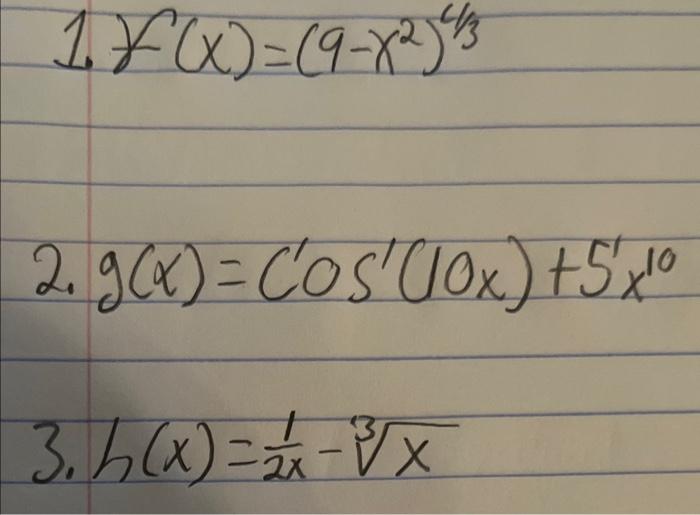 1. f(x)=(9-x²)^4/3
2. g(x)=cos(10x)+5x^10
3. h(x)=1/2x-∛x